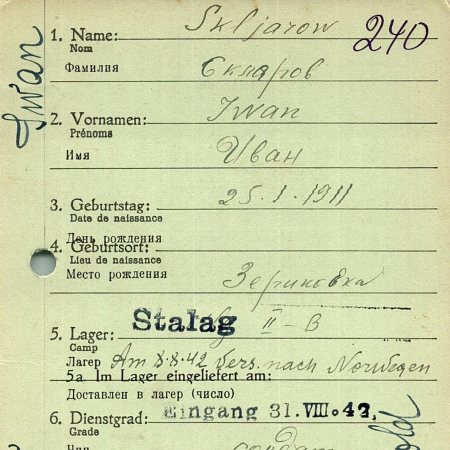 1. Name: Skljarow 240
Nom
Фамилия Скляров
Iwan
2. Vornamen: Iwan
Prénoms
Имя Иван
3. Geburtstag: 25.1.1911
Date de naissance
День рождения
4. Geburtsort:
Lieu de naissance
Место рождения
5. Lager: Stalag II-B
Camp
Лагер Am 8.8.42 Vers. nach Norwegen
5a. Im Lager eingeliefert am:
Доставлен в лагер (число)
6. Dienstgrad: Eingang 31. VIII. 42.
Grade
Чин солдат